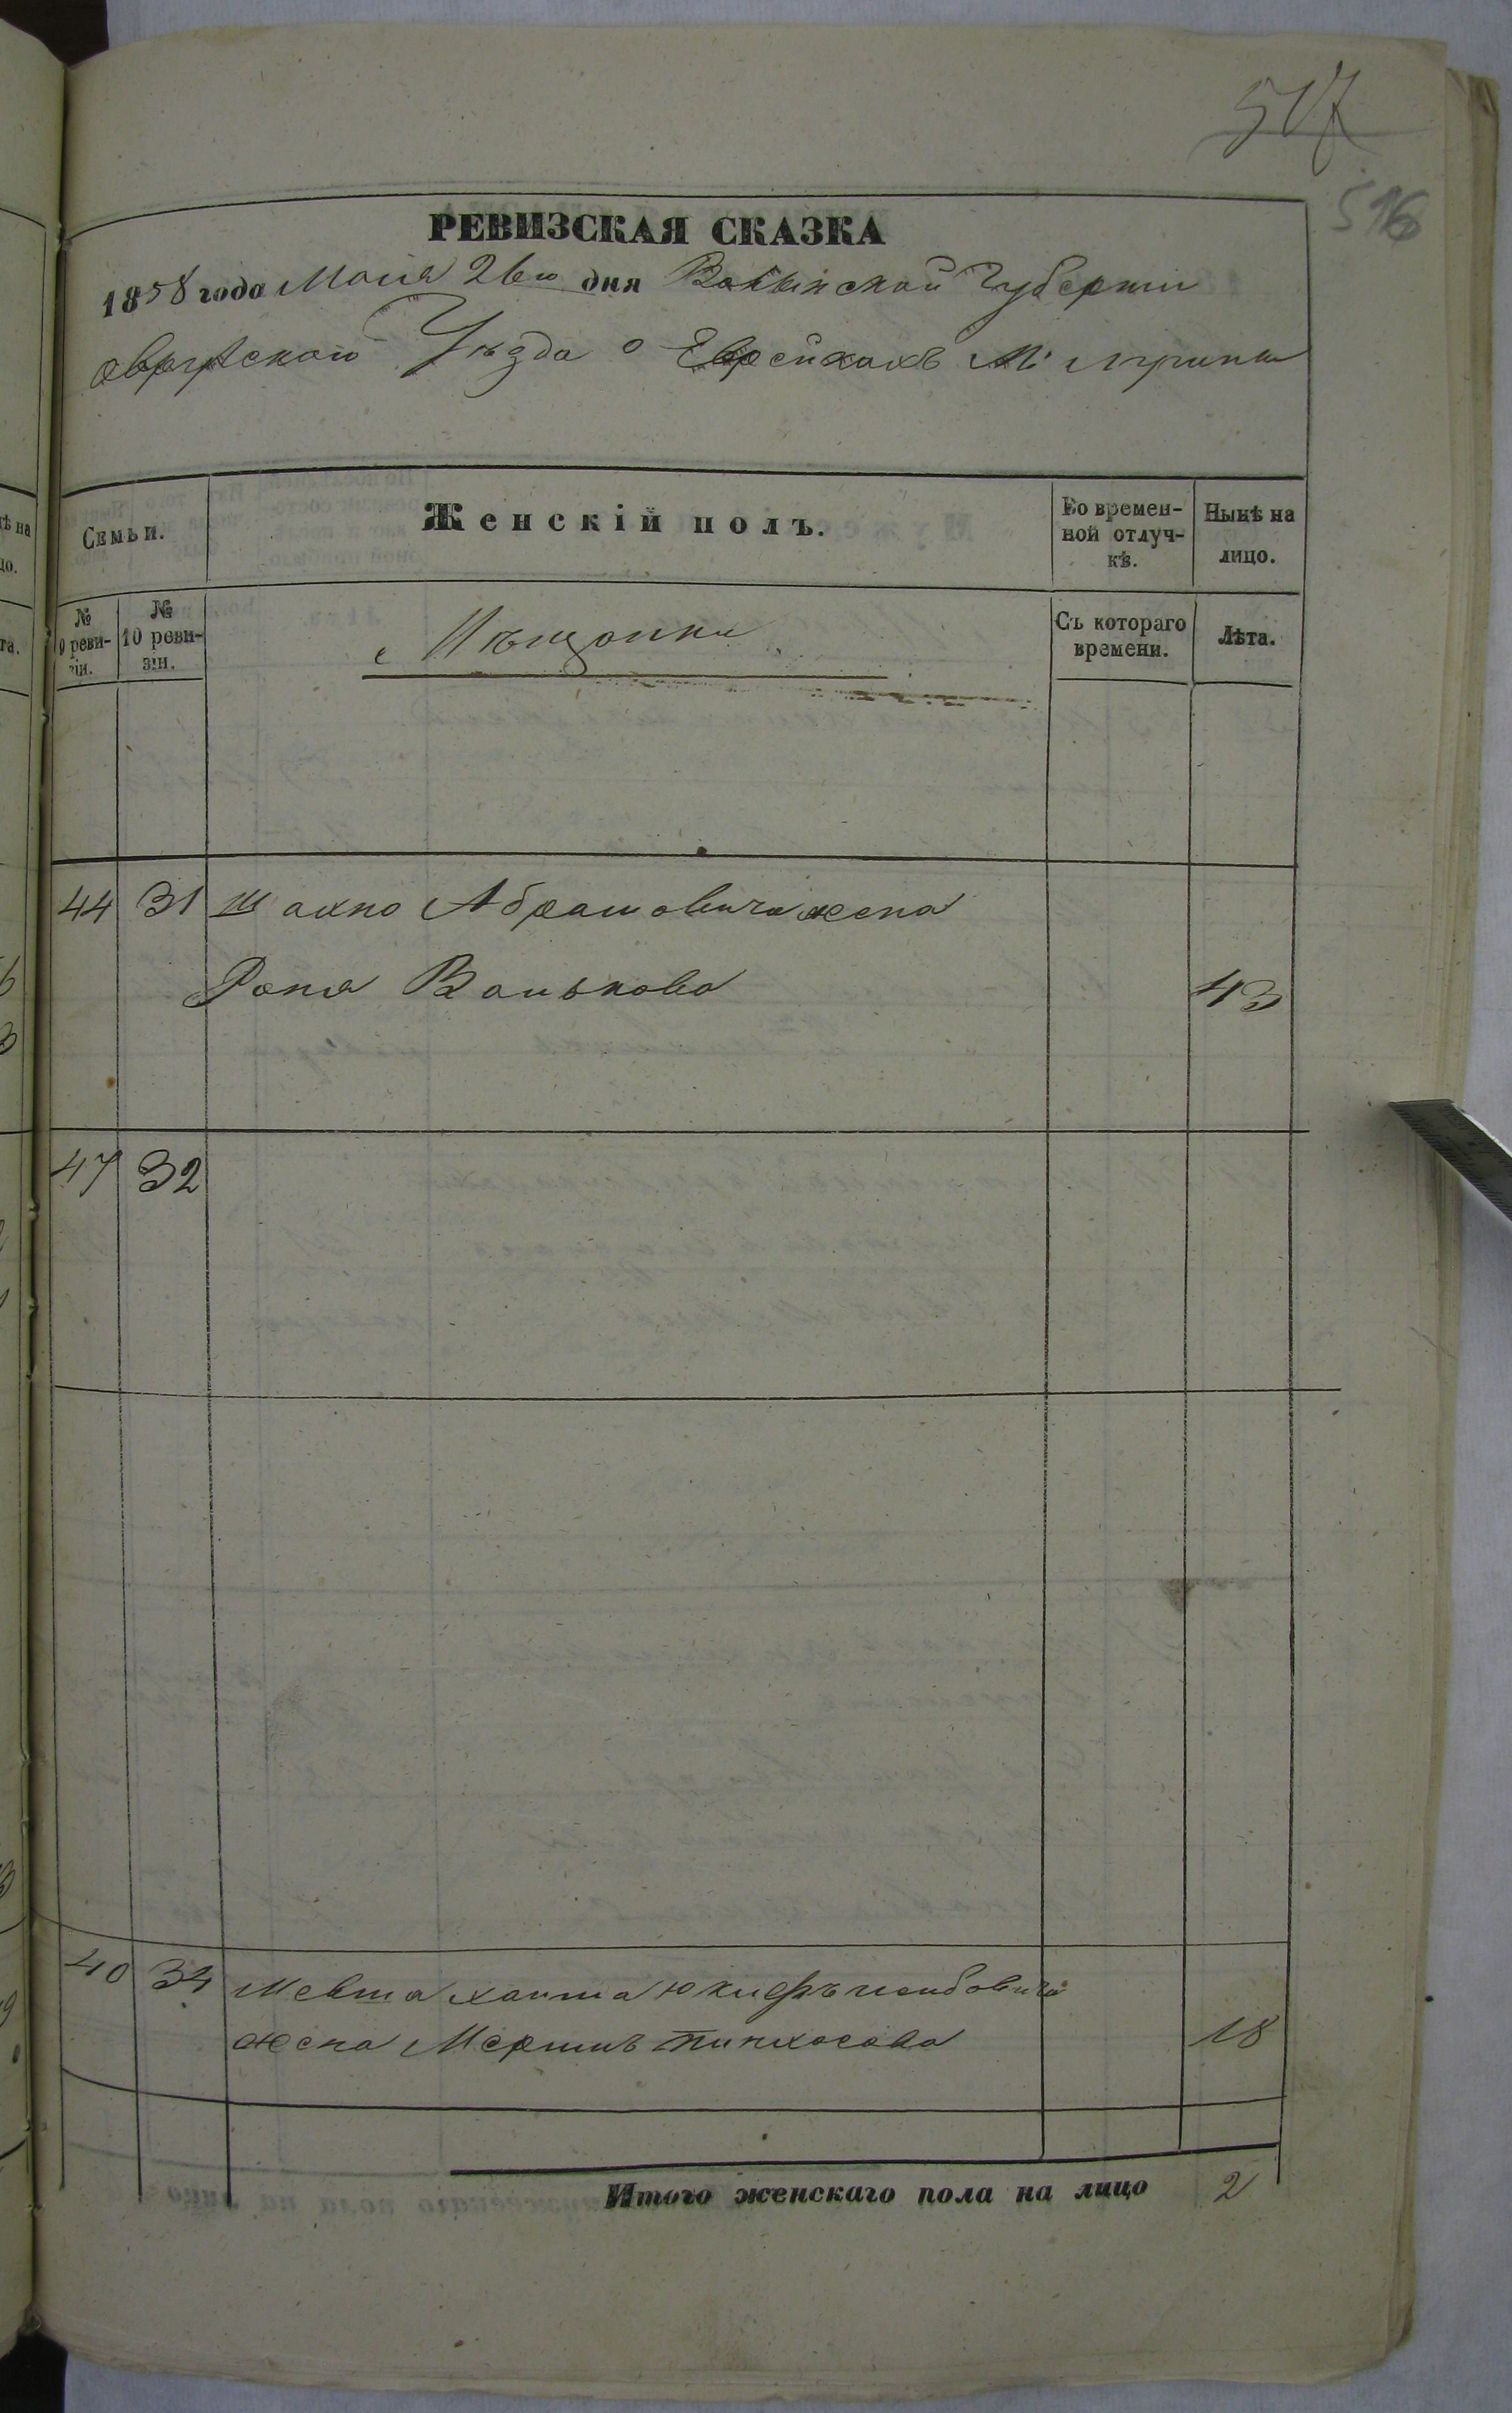 517
516
РЕВИЗСКАЯ СКАЗКА
1858 года Маія 26го дня Волынской Губерніи
Овручскаго Уѣзда о Еврейкахъ М.
Семьи.
Женскій полъ.
Во времен-
ной отлуч-
кѣ.
Нынѣ на
лицо.
№
9 реви-
зіи.
№
10 реви-
зіи.
Мѣщанки
Съ котораго
времени.
Лѣта.
44 31 Шахно Абрамовича жена
Волькова 43
47 32
40 34
жена Пинхасова 18
Итого женскаго пола на лицо 2